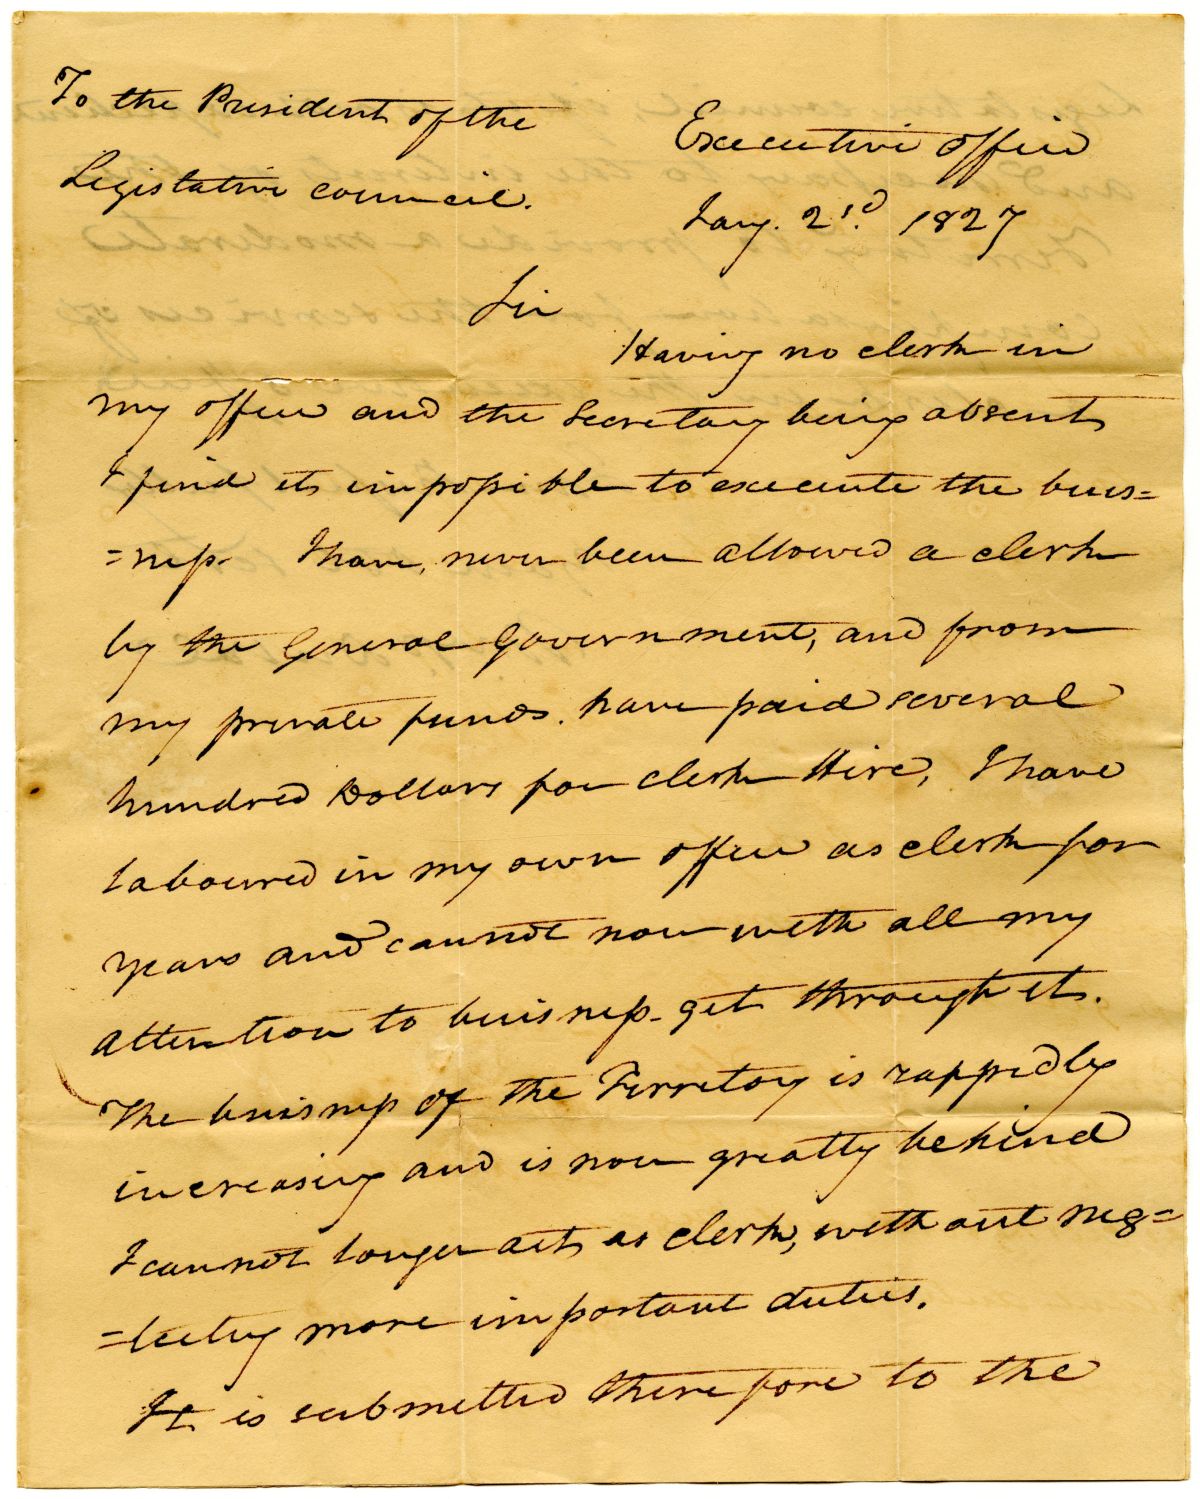 To the President of the
Legislative council.
Executive office
Jany. 2nd. 1827
Sir
Having no clerk in
my office and the Secretary being absent
I find it impossible to execute the buis=
=ness. I have, never been allowed a clerk
by the General Government, and from
my private funds. have paid several
hundred Dollars for clerk Hire, I have
laboured in my own office as clerk for
years and cannot now with all my
attention to buisness get through it.
The buisness of the Territory is rappidly
increasing and is now greatly behind
I cannot longer act as clerk, without neg=
=lecting more important duties.
It is submitted therefore to the